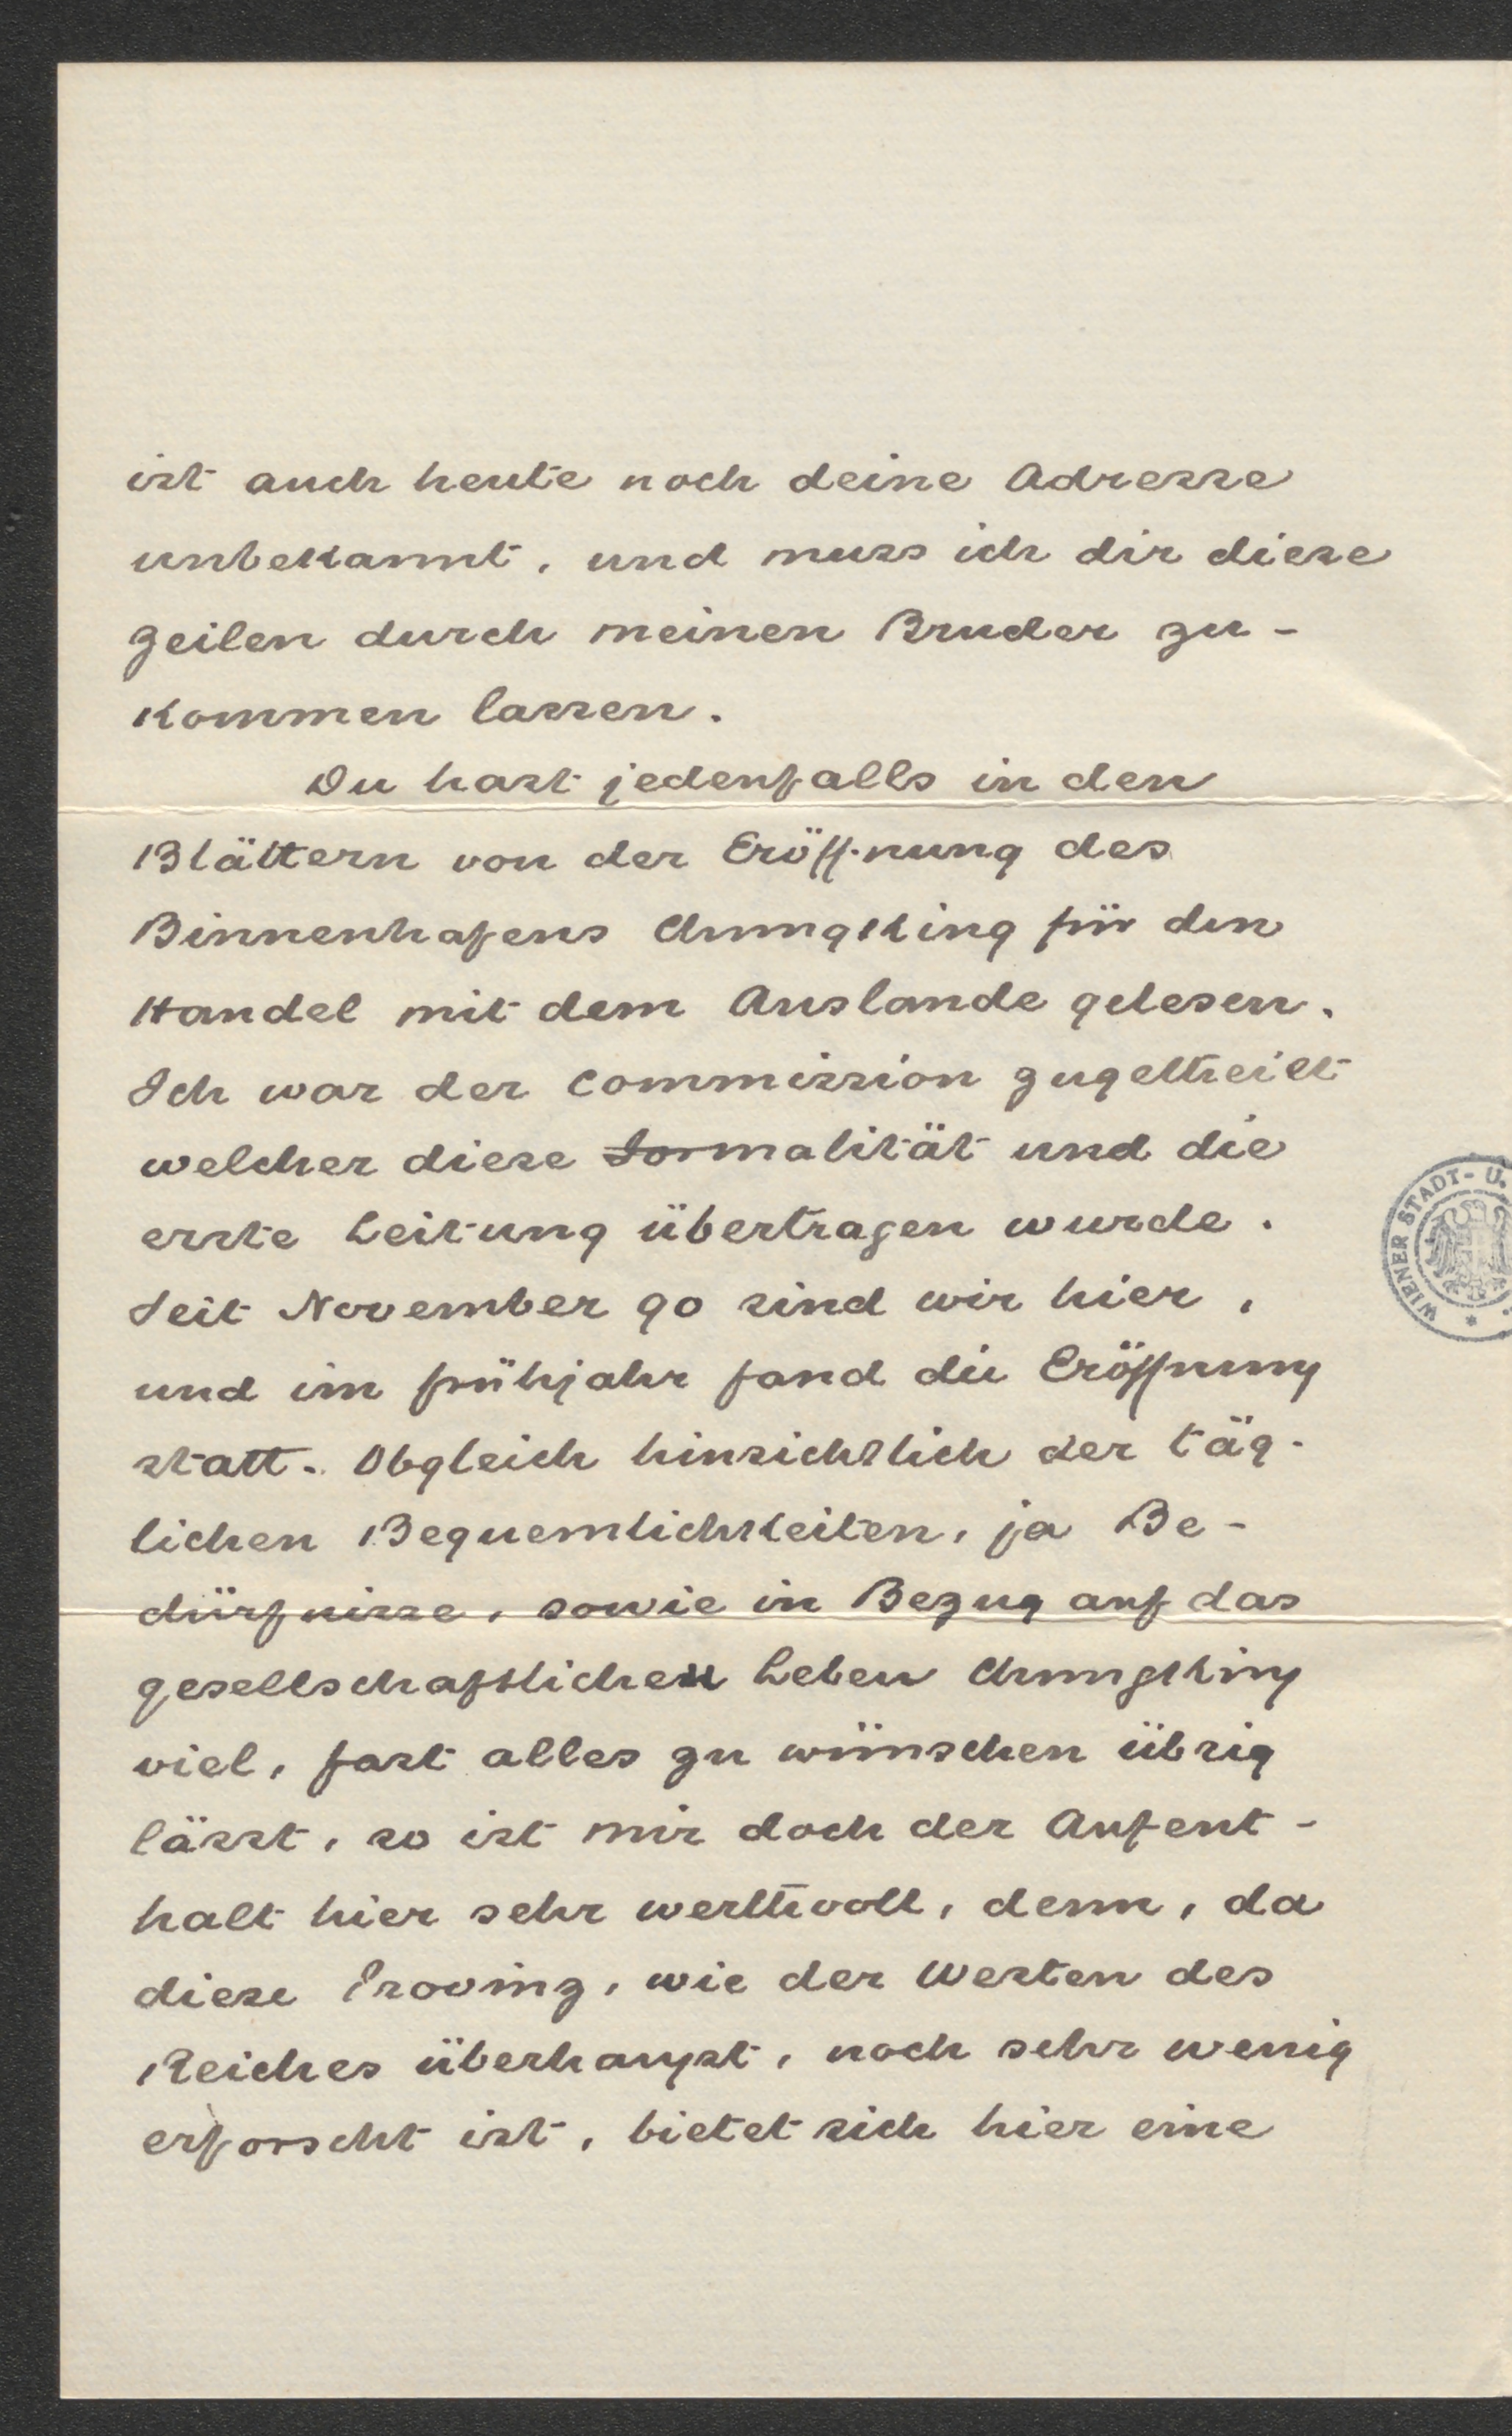 ist auch heute noch deine Adresse
unbekannt, und muss ich dir diese
Zeilen durch meinen Bruder zu-
kommen lassen.
Du hast jedenfalls in den
Blättern von der Eröffnung des
Binnenhafens Chungking für den
Handel mit dem Auslande gelesen.
Ich war der Commission zugetheilt
welcher diese Formalität und die
erste Leitung übertragen wurde.
Seit November 90 sind wir hier,
und im Frühjahr fand die Eröffnung
statt. Obgleich hinsichtlich der täg-
lichen Bequemlichkeiten, ja Be-
dürfnisse, sowie in Bezug auf das
gesellschaftlichen Leben Chungking
viel, fast alles zu wünschen übrig
lässt, so ist mir doch der Aufent-
halt hier sehr werthvoll, denn, da
diese Provinz, wie der Westen des
Reiches überhaupt, noch sehr wenig
erforscht ist, bietet sich hier eine
WIENER STADT- U.